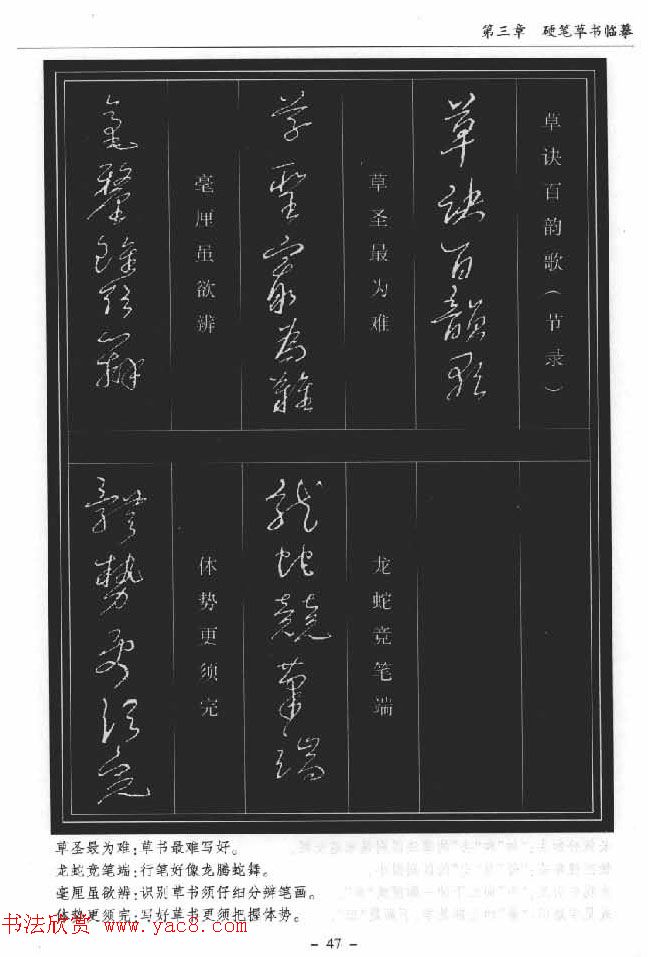 第三章 硬笔草书临摹
草诀百韵歌
草诀百韵歌(节录)
草圣最为难
草圣最为难
毫厘虽欲辨
毫釐雖欲辨
龙蛇竞笔端
龍蛇競筆端
体势更须完
體勢更須完
草圣最为难:草书最难写好。
龙蛇竞笔端:行笔好像龙腾蛇舞。
毫厘虽欲辨:识别草书须仔细分辨笔画。
体势更须完:写好草书更须把握体势。
书法欣赏 www.yac8.com
- 47 -